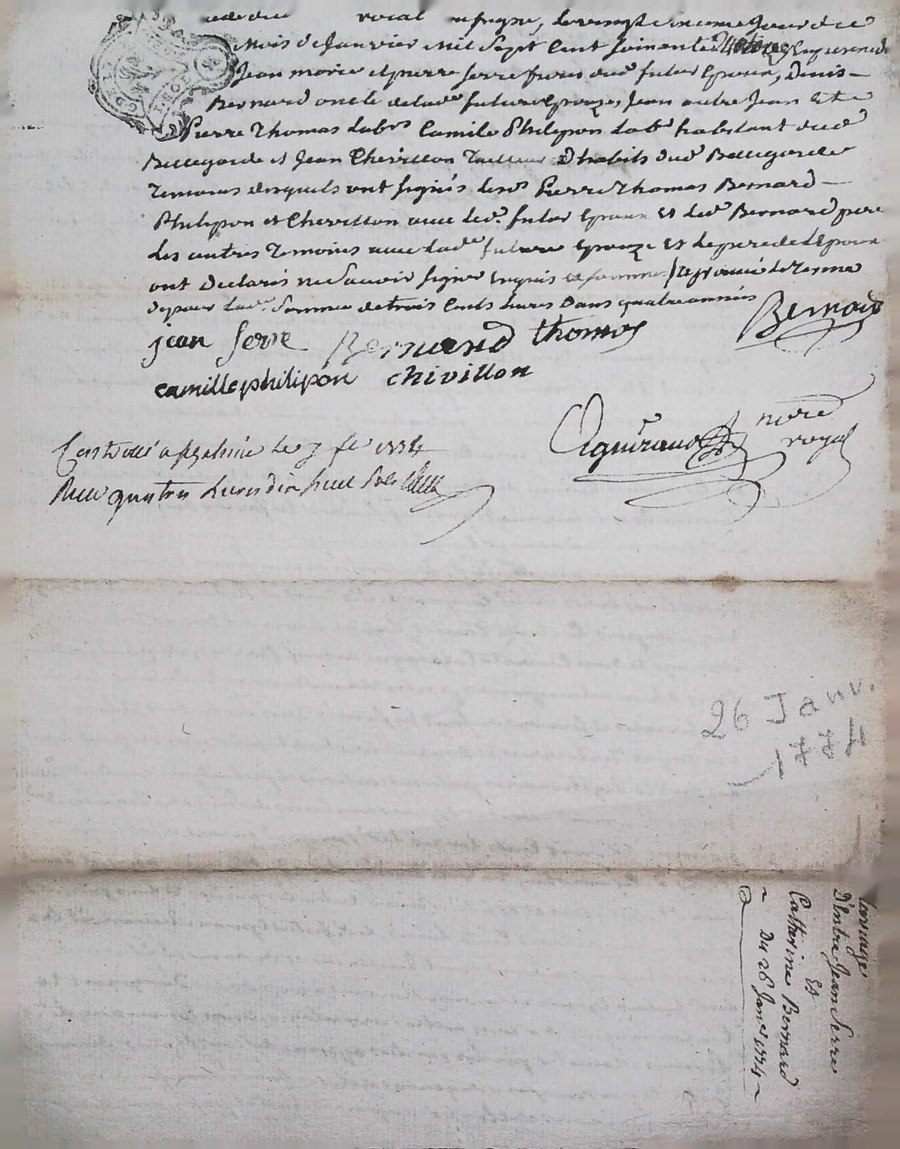 mois de janvier mil sept cent soixante quatorze En presence de
Jean marie et pierre serre freres dud.t futur Epoux, Denis
Bernard oncle de lad.e future Epouze, Jean autre Jean Et
Pierre Thomas Lab.rs Camile Philipon Lab.r habitant dud.
Bellegarde et Jean Chevillon Tailleur D'habits dud. Bellegarde
Temoins desquels ont signés lesd.s Pierre Thomas Bernard
Philipon et Chevillon avec led.t futur Epoux Et led.t Bernard pere
Les autres Temoins avec lad.e future Epouze Et le pere de L'Epoux
ont declarés ne savoir signer Enquis et sommés
lad.e Somme de trois Cents livres Dans quatre années
jean serre Bernard thomas Bernard
camille philipon chivillon
Aguiraud nore royal
le 7 fe 1774
Reçu quatre Livres dix huit sols
26 Janv.
1774
Mariage
D'entre Jean Serre
Et
Catherine Bernard
Du 26 Janer 1774